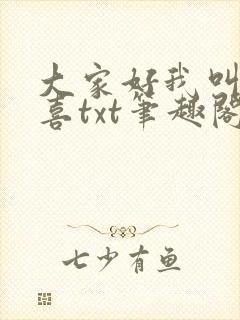 大家好我叫
喜txt笔趣阁
七少有鱼